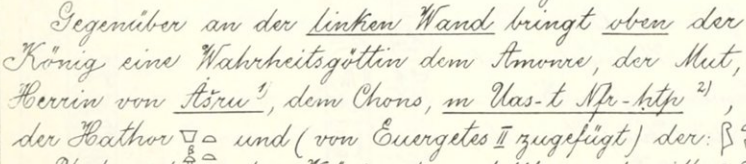 Gegenüber an der linken Wand bringt oben der
König eine Wahrheitsgöttin dem Amonre, der Mut,
Herrin von Ášru 1), dem Chons, m Uas-t Nfr-ḥtp 2),
der Hathor und (von Euergetes II zugefügt) der: